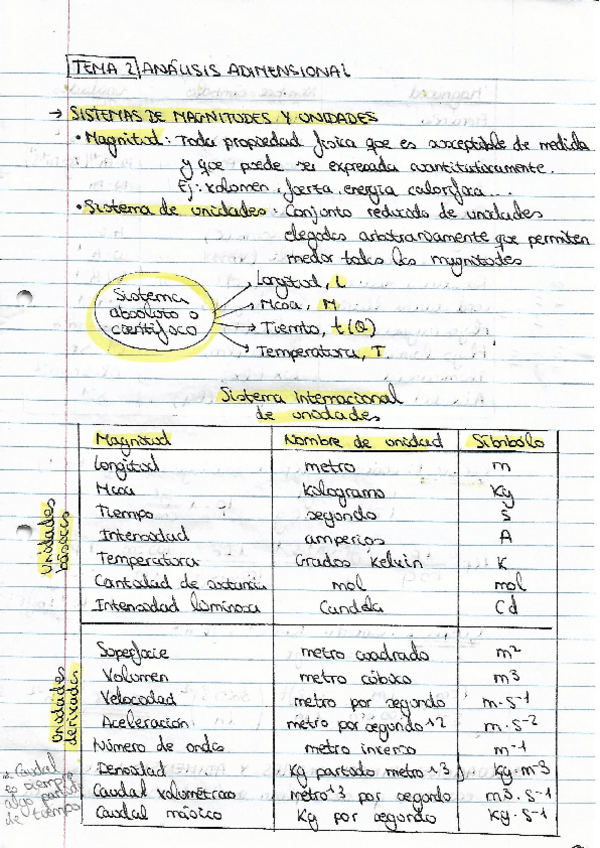 TEMA 2 ANÁLISIS ADIMENSIONAL
→ SISTEMAS DE MAGNITUDES Y UNIDADES
• Magnitud: Toda propiedad física que es susceptible de medida
y que puede ser expresada cuantitativamente.
Ej: volumen, fuerza, energía calorífica...
• Sistema de unidades: Conjunto reducido de unidades
elegidas arbitrariamente que permiten
medir todas las magnitudes
Sistema
absoluto o
científico
Longitud, L
Masa, M
Tiempo, t(θ)
Temperatura, T.
Sistema Internacional
de unidades
Magnitud Nombre de unidad Símbolo
Unidades
básicas
Longitud metro m
Masa Kilogramo Kg
Tiempo segundo s
Intensidad amperios A
Temperatura Grados Kelvin K
Cantidad de sustancia mol mol
Intensidad luminosa Candela Cd
Unidades
derivadas
Superficie metro cuadrado m²
Volumen metro cúbico m³
Velocidad metro por segundo m·s⁻¹
Aceleración metro por segundo^2 m·s⁻²
Número de ondas metro inverso m⁻¹
Densidad Kg partido metro^3 Kg·m⁻³
Caudal volumétrico metro^3 por segundo m³·s⁻¹
Caudal másico Kg por segundo Kg·s⁻¹
* Caudal
es siempre
algo partido
de tiempo